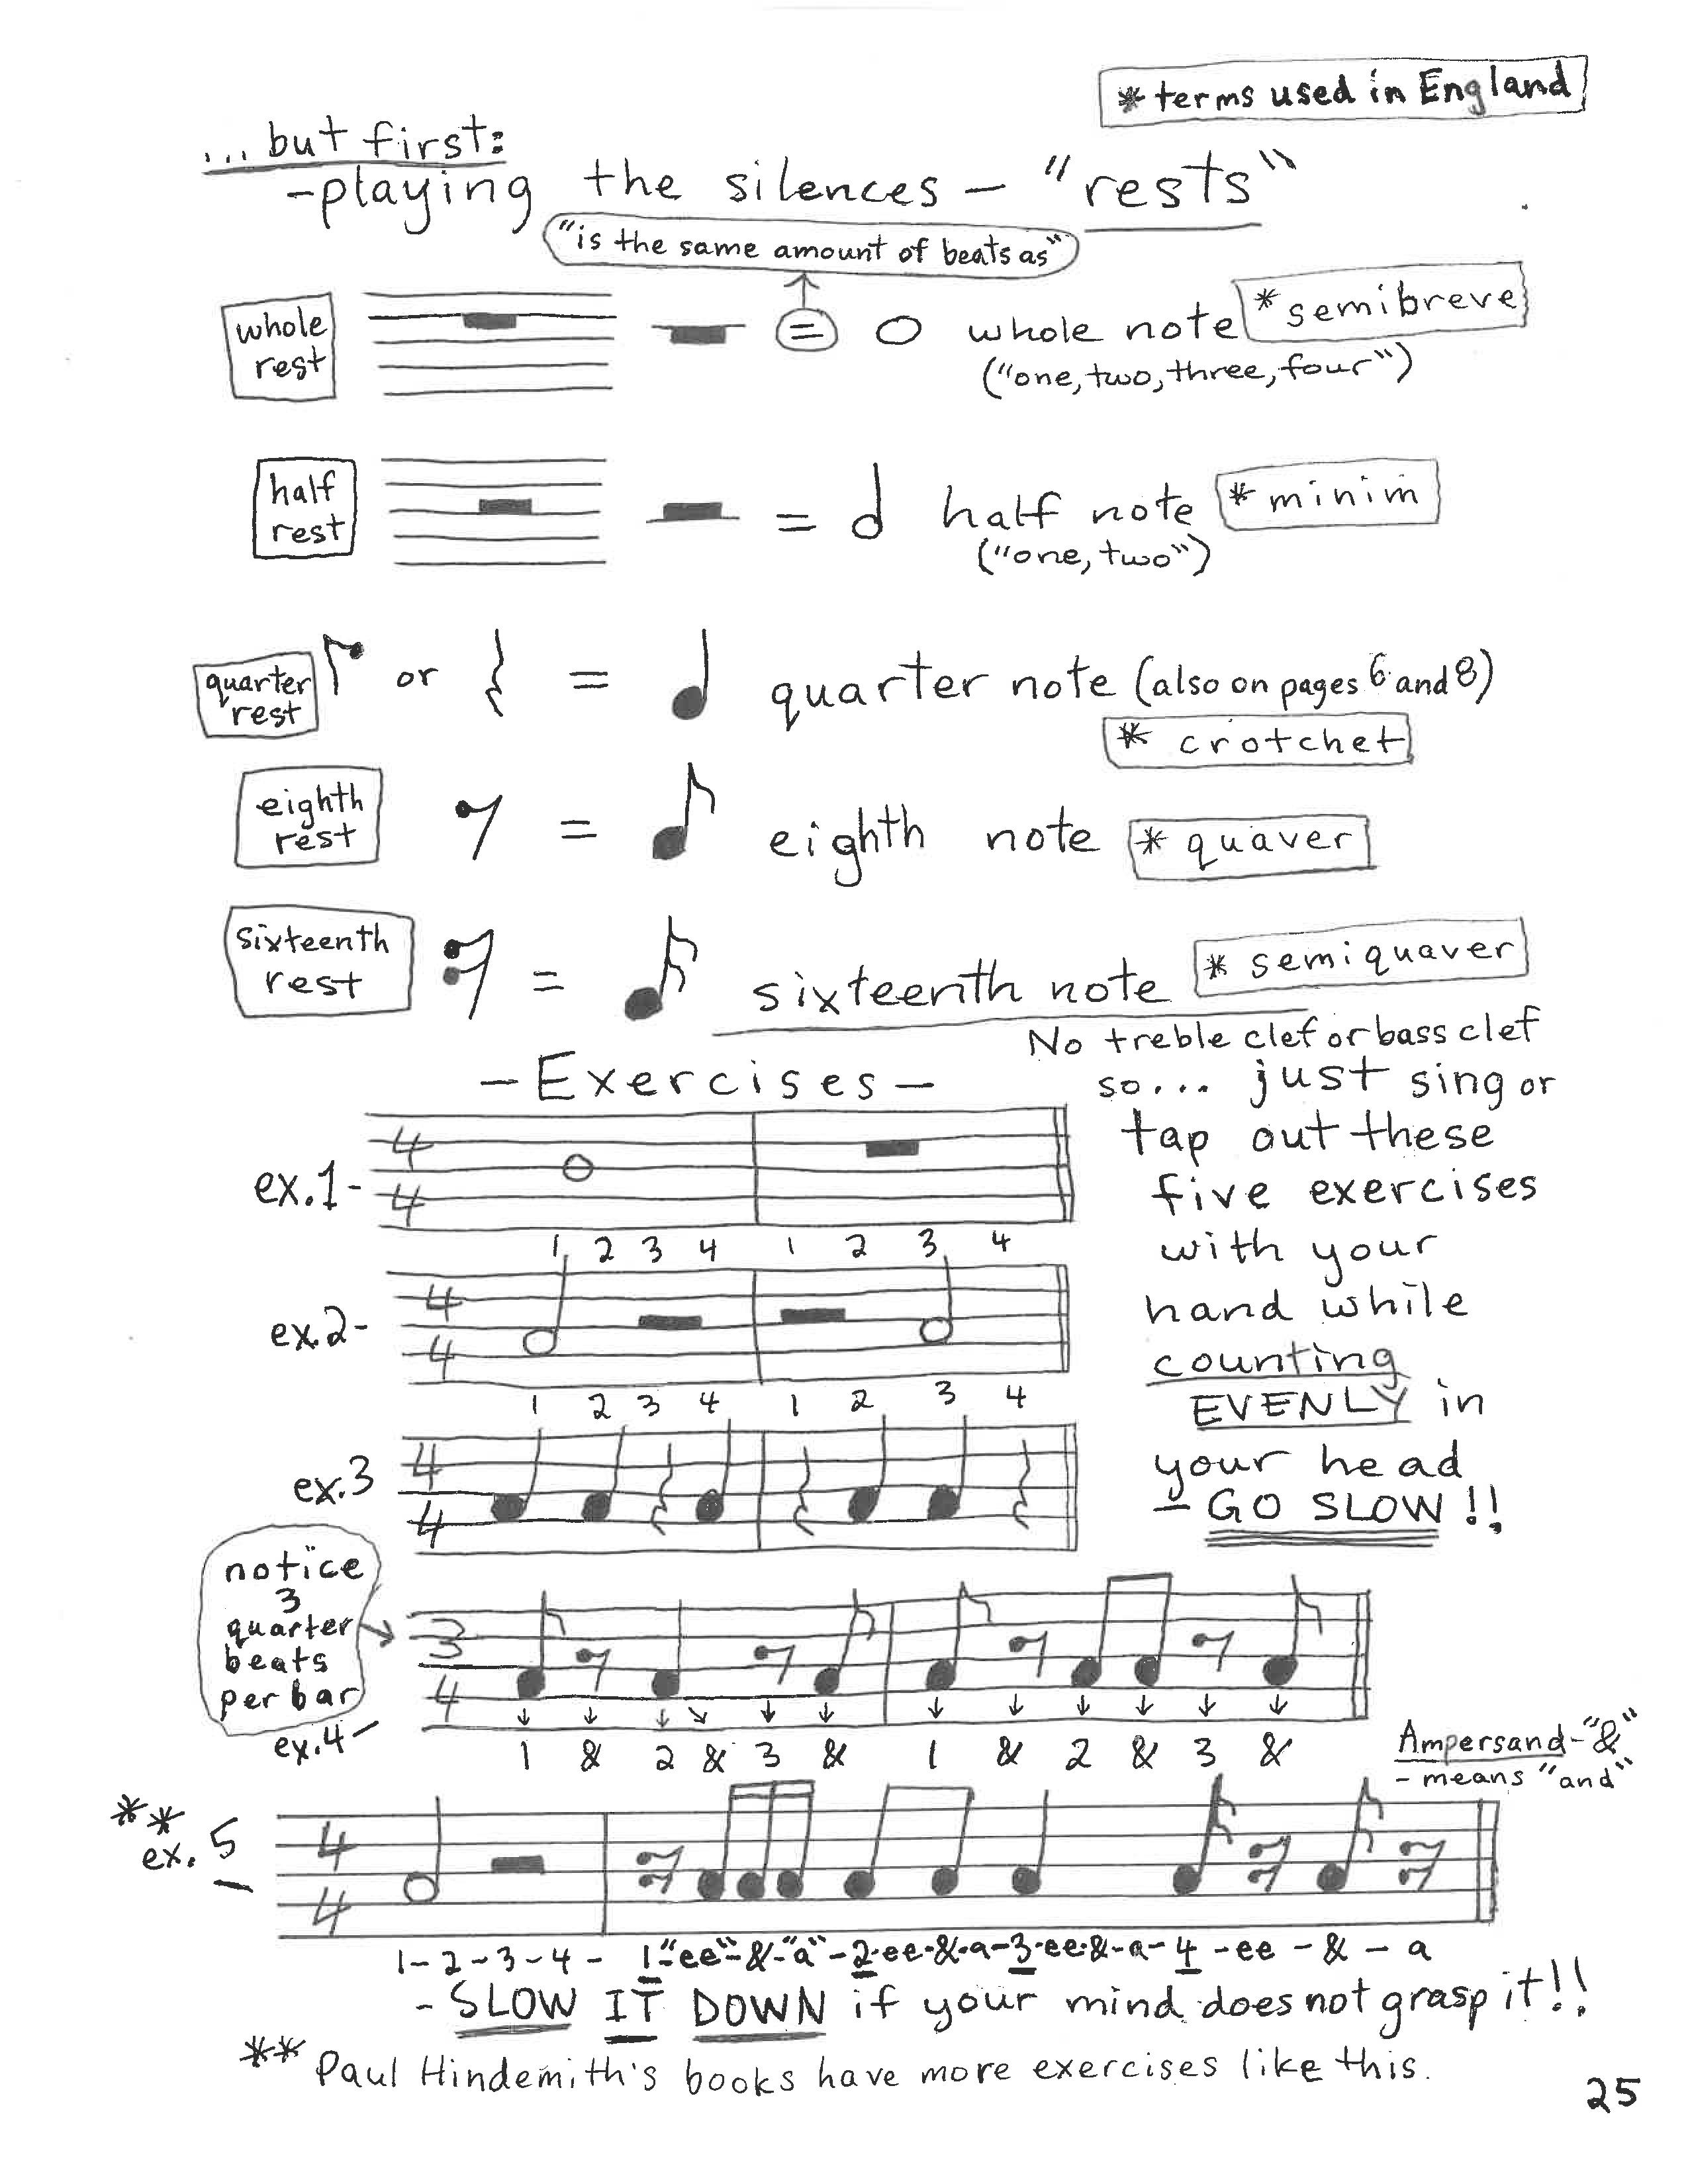 *terms used in England
...but first:
-playing the silences- "rests"
"is the same amount of beats as"
whole
rest
=
whole note
*semibreve
("one, two, three, four")
half
rest
=
half note
*minim
("one, two")
quarter
rest
or
=
quarter note (also on pages 6 and 8)
* crotchet
eighth
rest
=
eighth note
* quaver
sixteenth
rest
=
sixteenth note
* semiquaver
-Exercises-
No treble clef or bass clef
so... just sing or
tap out these
five exercises
with your
hand while
counting
EVENLY in
your head
- GO SLOW!!
ex.1-
4
4
1 2 3 4 1 2 3 4
ex.2-
4
4
1 2 3 4 1 2 3 4
ex.3
4
4
notice
3
quarter
beats
per bar
ex.4-
3
4
1 & 2 & 3 & 1 & 2 & 3 &
Ampersand-"&"
- means "and"
**
ex. 5
-
4
4
1-2-3-4- 1-"ee"-&-"a"-2-ee-&-a-3-ee-&-a-4-ee-&-a
- SLOW IT DOWN if your mind does not grasp it!!
** Paul Hindemith's books have more exercises like this.
25